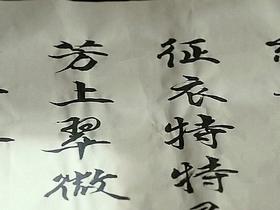 征衣特特
芳上翠微